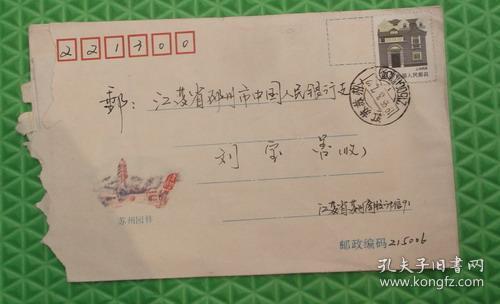 221300
中国人民邮政
郵：江苏省邳州市中国人民银行
刘宝善（收）
苏州园林
江苏省苏州
邮政编码 215006
孔夫子旧书网
www.kongfz.com